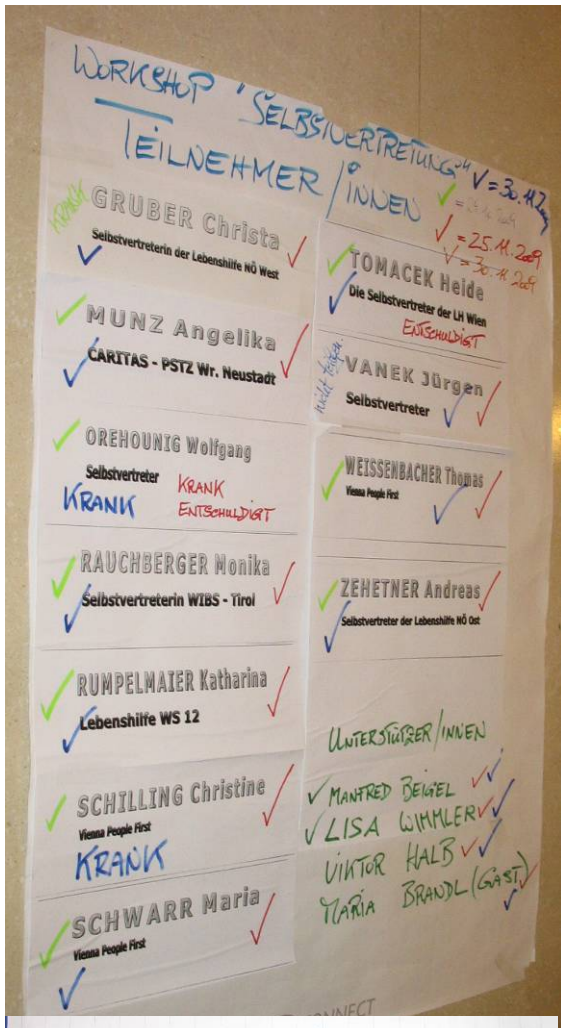 WORKSHOP "SELBSTVERTRETUNG"
TEILNEHMER/INNEN
✓ = 30.11.2009
✓ = 25.11.2009
✓ = 30.11.2009
KRANK
GRUBER Christa
Selbstvertreterin der Lebenshilfe NÖ West
MUNZ Angelika
CARITAS - PSTZ Wr. Neustadt
OREHOUNIG Wolfgang
Selbstvertreter
KRANK
KRANK
ENTSCHULDIGT
RAUCHBERGER Monika
Selbstvertreterin WIBS - Tirol
RUMPELMAIER Katharina
Lebenshilfe WS 12
SCHILLING Christine
Vienna People First
KRANK
SCHWARR Maria
Vienna People First
TOMACEK Heide
Die Selbstvertreter der LH Wien
ENTSCHULDIGT
VANEK Jürgen
Selbstvertreter
WEISSENBACHER Thomas
Vienna People First
ZEHETNER Andreas
Selbstvertreter der Lebenshilfe NÖ Ost
UNTERSTÜTZER/INNEN
MANFRED BEIGEL
LISA WIMMLER
VIKTOR HALB
MARIA BRANDL (GAST)